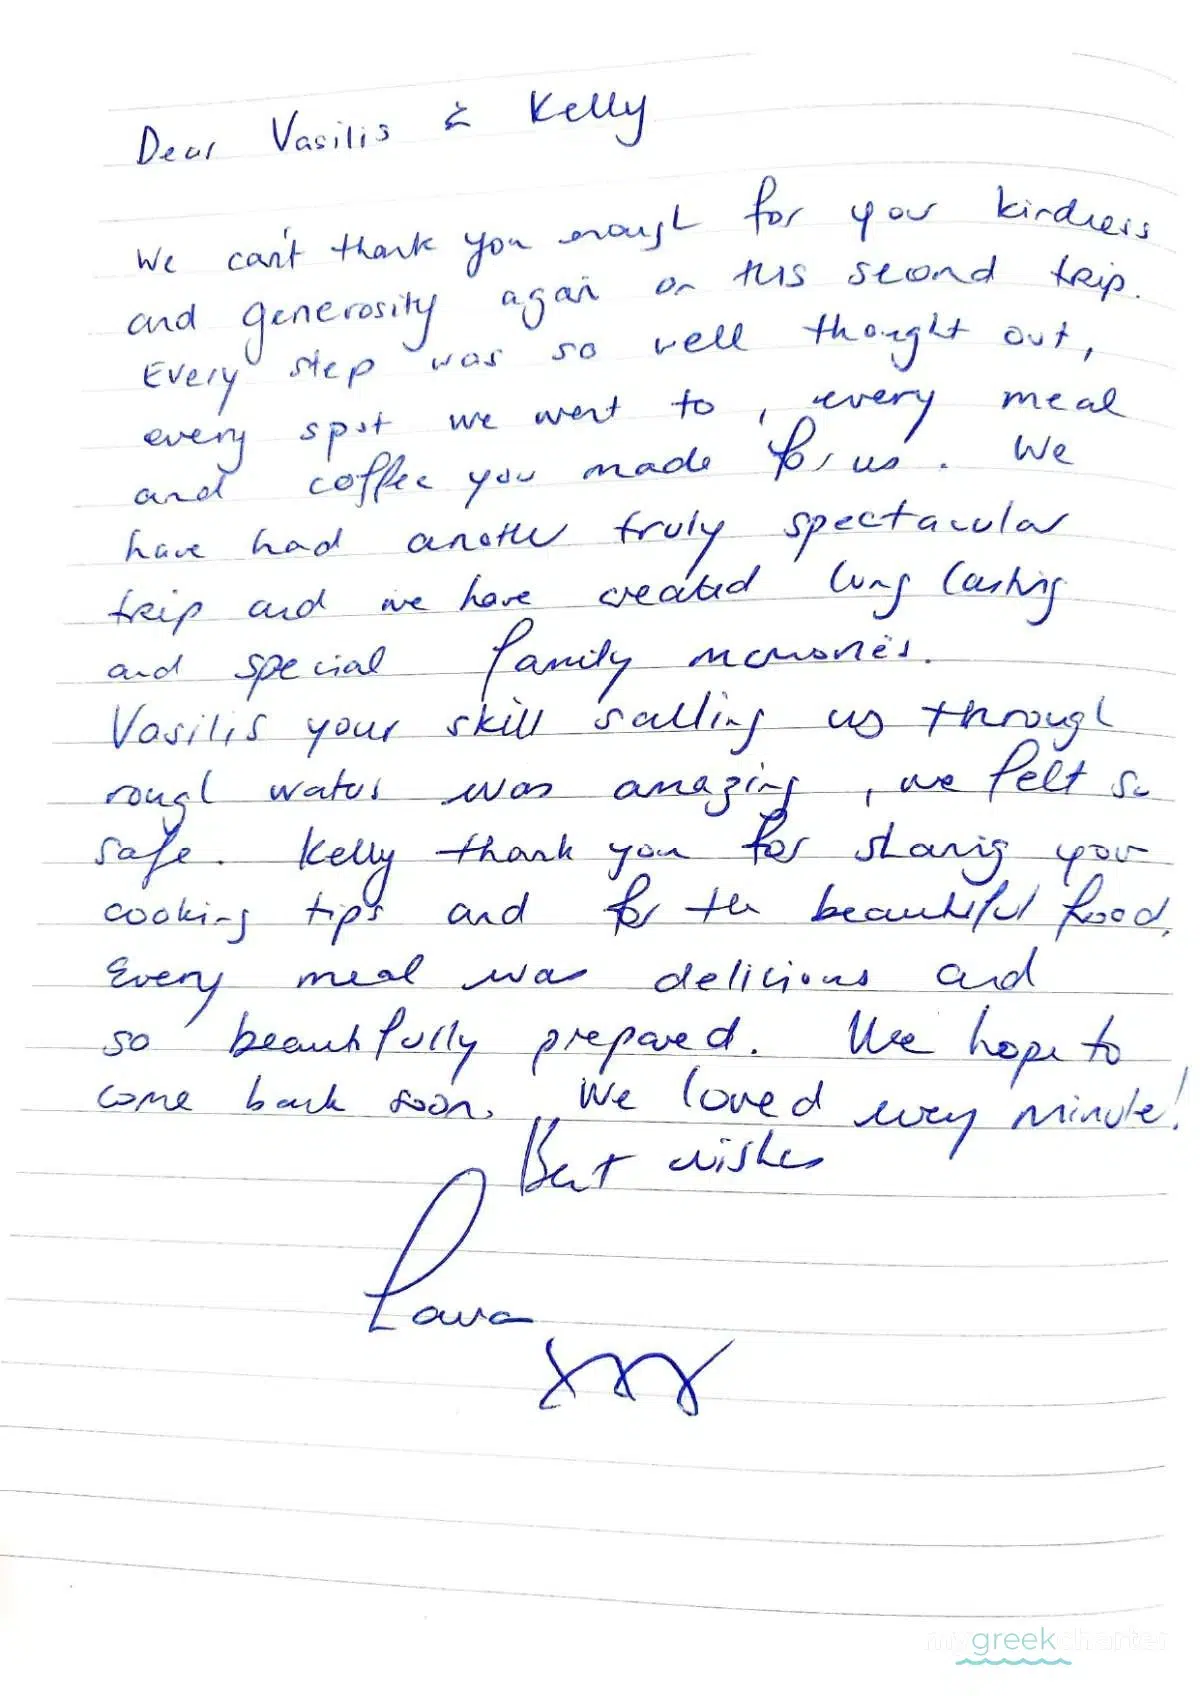 Dear Vasilis & Kelly
We can't thank you enough for your kindness
and generosity again on this second trip.
Every step was so well thought out,
every spot we went to, every meal
and coffee you made for us. We
have had another truly spectacular
trip and we have created long lasting
and special family memories.
Vasilis your skill sailing us through
rough waters was amazing, we felt so
safe. Kelly thank you for sharing your
cooking tips and for the beautiful food.
Every meal was delicious and
so beautifully prepared. We hope to
come back soon. We loved every minute!
Best wishes
Lara
xxx
mygreekcharter